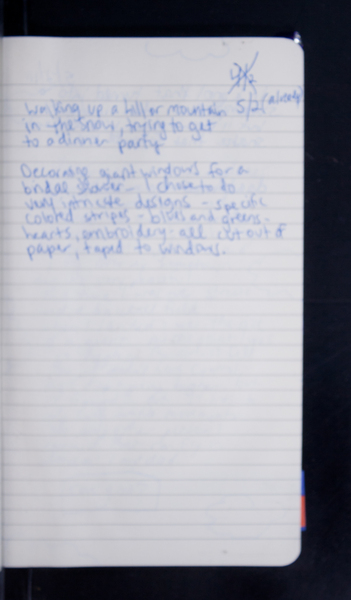 5/2 (already)
Walking up a hill or mountain
in the snow, trying to get
to a dinner party
Decorating giant windows for a
bridal shower - I chose to do
very intricate designs - specific
colored stripes - blues and greens -
hearts, embroidery - all cut out of
paper, taped to windows.